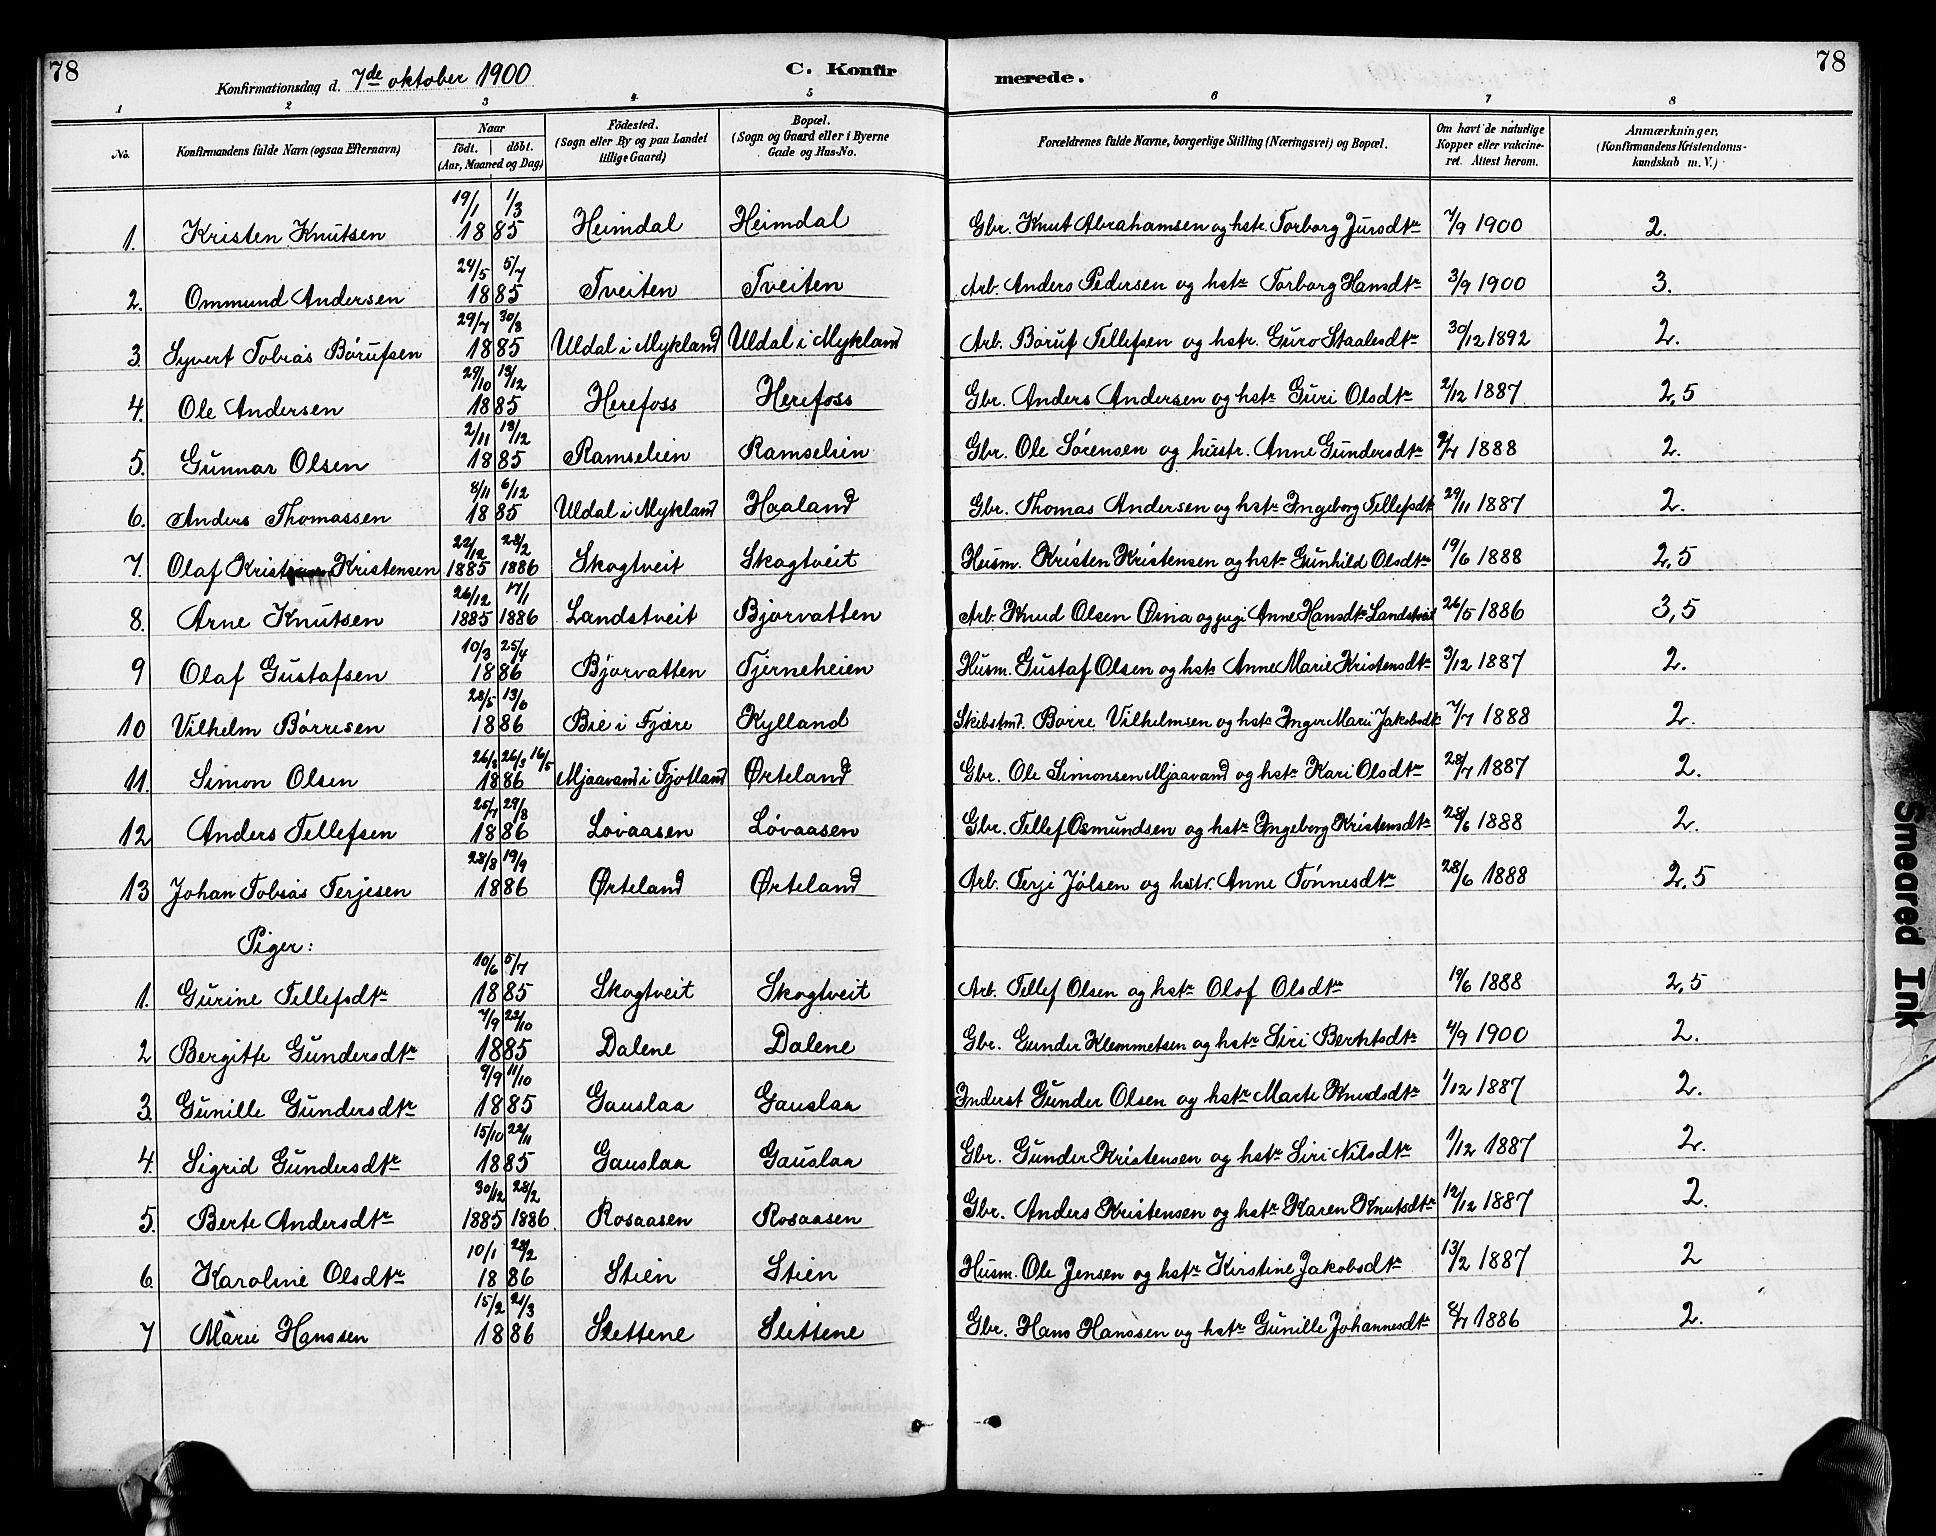 78
Konfirmationsdag d. 7de oktober 1900
C. Konfirmerede.
78
1 2 3 4 5 6 7 8
No. | Konfirmandens fulde Navn (ogsaa Efternavn) | Naar födt. döbt. (Aar, Maaned og Dag) | Födested. (Sogn eller By og paa Landet tillige Gaard) | Bopæl. (Sogn og Gaard eller i Byerne Gade og Hus-No. | Forældrenes fulde Navne, borgerlige Stilling (Næringsvei) og Bopæl. | Om havt de naturlige Kopper eller vakcineret. Attest herom. | Anmærkninger. (Konfirmandens Kristendomskundskab m. V.)
1. Kristen Knutsen 19/1 1/3 1885 Heimdal Heimdal Gbr. Knut Abrahamsen og hstr. Torborg Jursdtr 7/9 1900 2.
2. Ommund Andersen 24/5 5/7 1885 Tveiten Tveiten Arb. Anders Pedersen og hstr Torborg Hansdtr 3/9 1900 3.
3. Syvert Tobias Börufsen 29/7 30/8 1885 Uldal i Mykland Uldal i Mykland Arb. Böruf Tellefsen og hstr. Guro Staalesdtr 30/12 1892 2.
4. Ole Andersen 29/10 13/12 1885 Herefoss Herefoss Gbr. Anders Andersen og hstr Guri Olsdtr 2/12 1887 2,5
5. Gunnar Olsen 2/11 13/12 1885 Ramselien Ramselien Gbr. Ole Sörensen og hustr. Anne Gundersdtr 2/7 1888 2.
6. Anders Thomassen 8/11 6/12 1885 Uldal i Mykland Haaland Gbr. Thomas Andersen og hstr Ingeborg Tellefsdtr 29/11 1887 2.
7. Olaf Kristensen 22/12 28/2 1885 1886 Skogtveit Skogtveit Husm. Kristen Kristensen og hstr Gunhild Olsdtr 19/6 1888 2,5
8. Arne Knutsen 26/12 17/1 1885 1886 Landstveit Bjorvatten Arb. Knud Olsen Øina og pige Anne Hansdtr Landstveit 26/5 1886 3,5
9 Olaf Gustafsen 10/3 25/4 1886 Bjorvatten Tjerneheien Husm. Gustaf Olsen og hstr Anne Marie Kristensdtr 3/12 1887 2.
10 Vilhelm Börresen 28/5 13/6 1886 Bie i Fjære Kylland Skibstmd. Börre Vilhelmsen og hstr Inger Marie Jakobsdtr 7/7 1888 2.
11. Simon Olsen 26/3 26/3 16/5 1886 Mjaavand i Fjotland Ørteland Gbr. Ole Simonsen Mjaavand og hstr Kari Olsdtr 28/7 1887 2.
12 Anders Tellefsen 25/7 29/8 1886 Lövaasen Lövaasen Gbr. Tellef Osmundsen og hstr Ingeborg Kristensdtr 28/6 1888 2.
13 Johan Tobias Terjesen 28/8 19/9 1886 Ørteland Ørteland Arb. Terje Jölsen og hstr. Anne Tönnesdtr 28/6 1888 2,5
Piger:
1. Gurine Tellefsdtr 10/6 5/7 1885 Skogtveit Skogtveit Arb. Tellef Olsen og hstr Olof Olsdtr 19/6 1888 2,5
2 Bergitte Gundersdtr 7/9 22/10 1885 Dalene Dalene Gbr. Gunder Klemmetsen og hstr Siri Berntsdtr 4/9 1900 2.
3. Gunille Gundersdtr 9/9 11/10 1885 Gauslaa Gauslaa Inderst Gunder Olsen og hstr Marte Knudsdtr 1/12 1887 2.
4. Sigrid Gundersdtr 15/10 22/11 1885 Gauslaa Gauslaa Gbr. Gunder Kristensen og hstr Siri Nilsdtr 1/12 1887 2.
5. Berte Andersdtr 30/12 28/2 1885 1886. Rosaasen Rosaasen Gbr. Anders Kristensen og hstr Karen Knutsdtr 12/12 1887 2.
6. Karoline Olsdtr 10/1 28/2 1886 Stien Stien Husm. Ole Jensen og hstr Kirstine Jakobsdtr 13/2 1887 2
7 Marie Hanssen 15/2 21/3 1886 Slettene Slettene Gbr. Hans Hanssen og hstr Gunille Johannesdtr 8/7 1886 2.
Smeared Ink